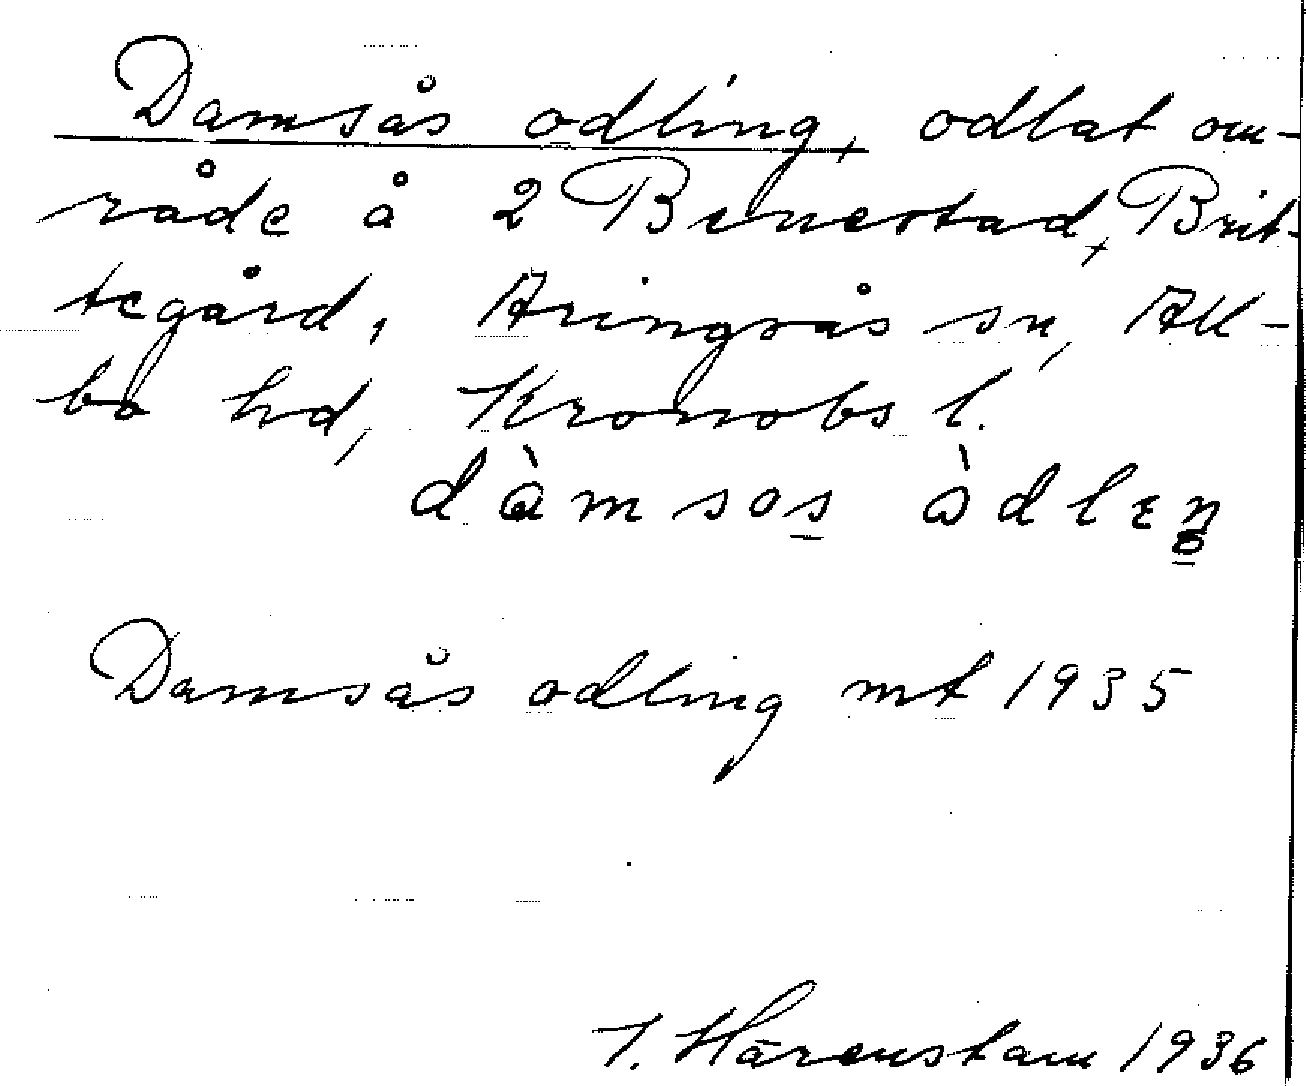 Damsås odling, odlat om-
råde å 2 Benestad, Brit-
tegård, Aringsås sn, All-
bo hd, Kronobs l.
dàmsos àdleŋ
Damsås odling mt 1935
J. Härenstam 1936